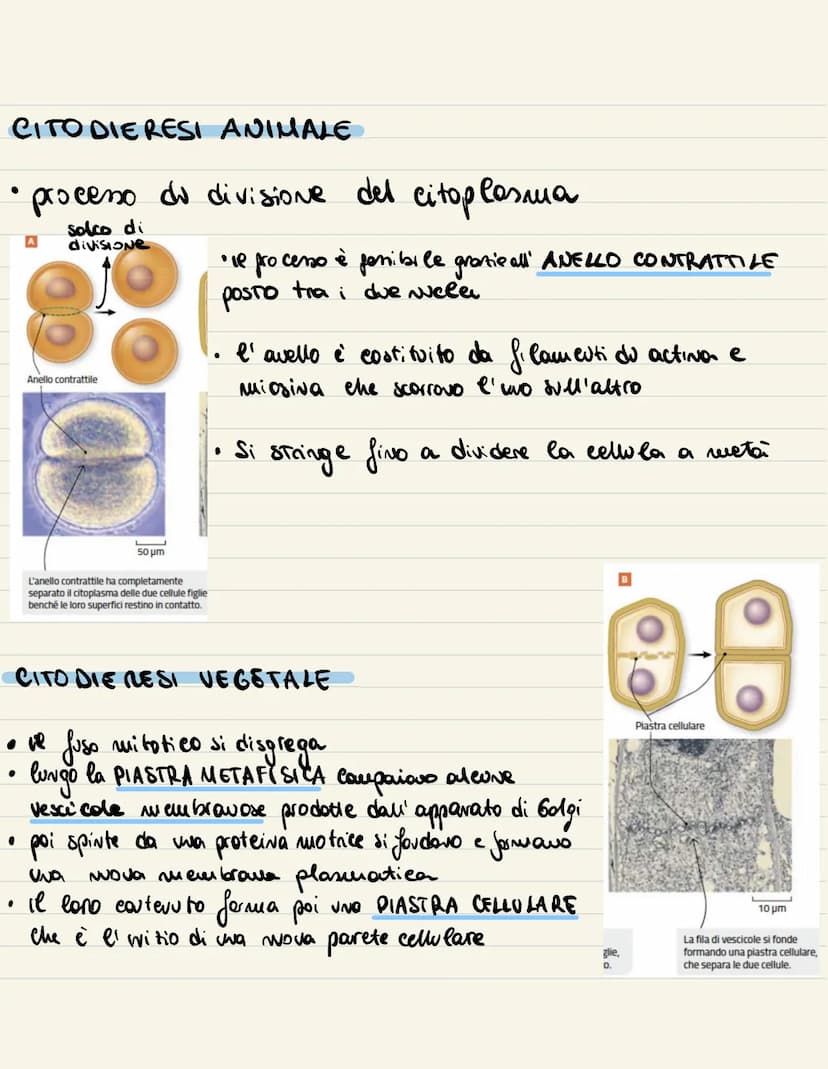 CITODIERESI ANIMALE
• processo di divisione del citoplasma
solco di
divisione
A
• il processo è possibile grazie all' ANELLO CONTRATTILE
posto tra i due nuclei
Anello contrattile
• l'anello è costituito da filamenti di actina e
miosina che scorrono l'uno sull'altro
• Si stringe fino a dividere la cellula a metà
50 µm
L'anello contrattile ha completamente
separato il citoplasma delle due cellule figlie
benché le loro superfici restino in contatto.
B
CITODIERESI VEGETALE
Piastra cellulare
• il fuso mitotico si disgrega
• lungo la PIASTRA METAFISICA compaiono alcune
vescicole membranose prodotte dall' apparato di Golgi
• poi spinte da una proteina motrice si fondono e formano
una nuova membrana plasmatica
• il loro contenuto forma poi una PIASTRA CELLULARE
che è l'inizio di una nuova parete cellulare
10 µm
glie,
o.
La fila di vescicole si fonde
formando una piastra cellulare,
che separa le due cellule.